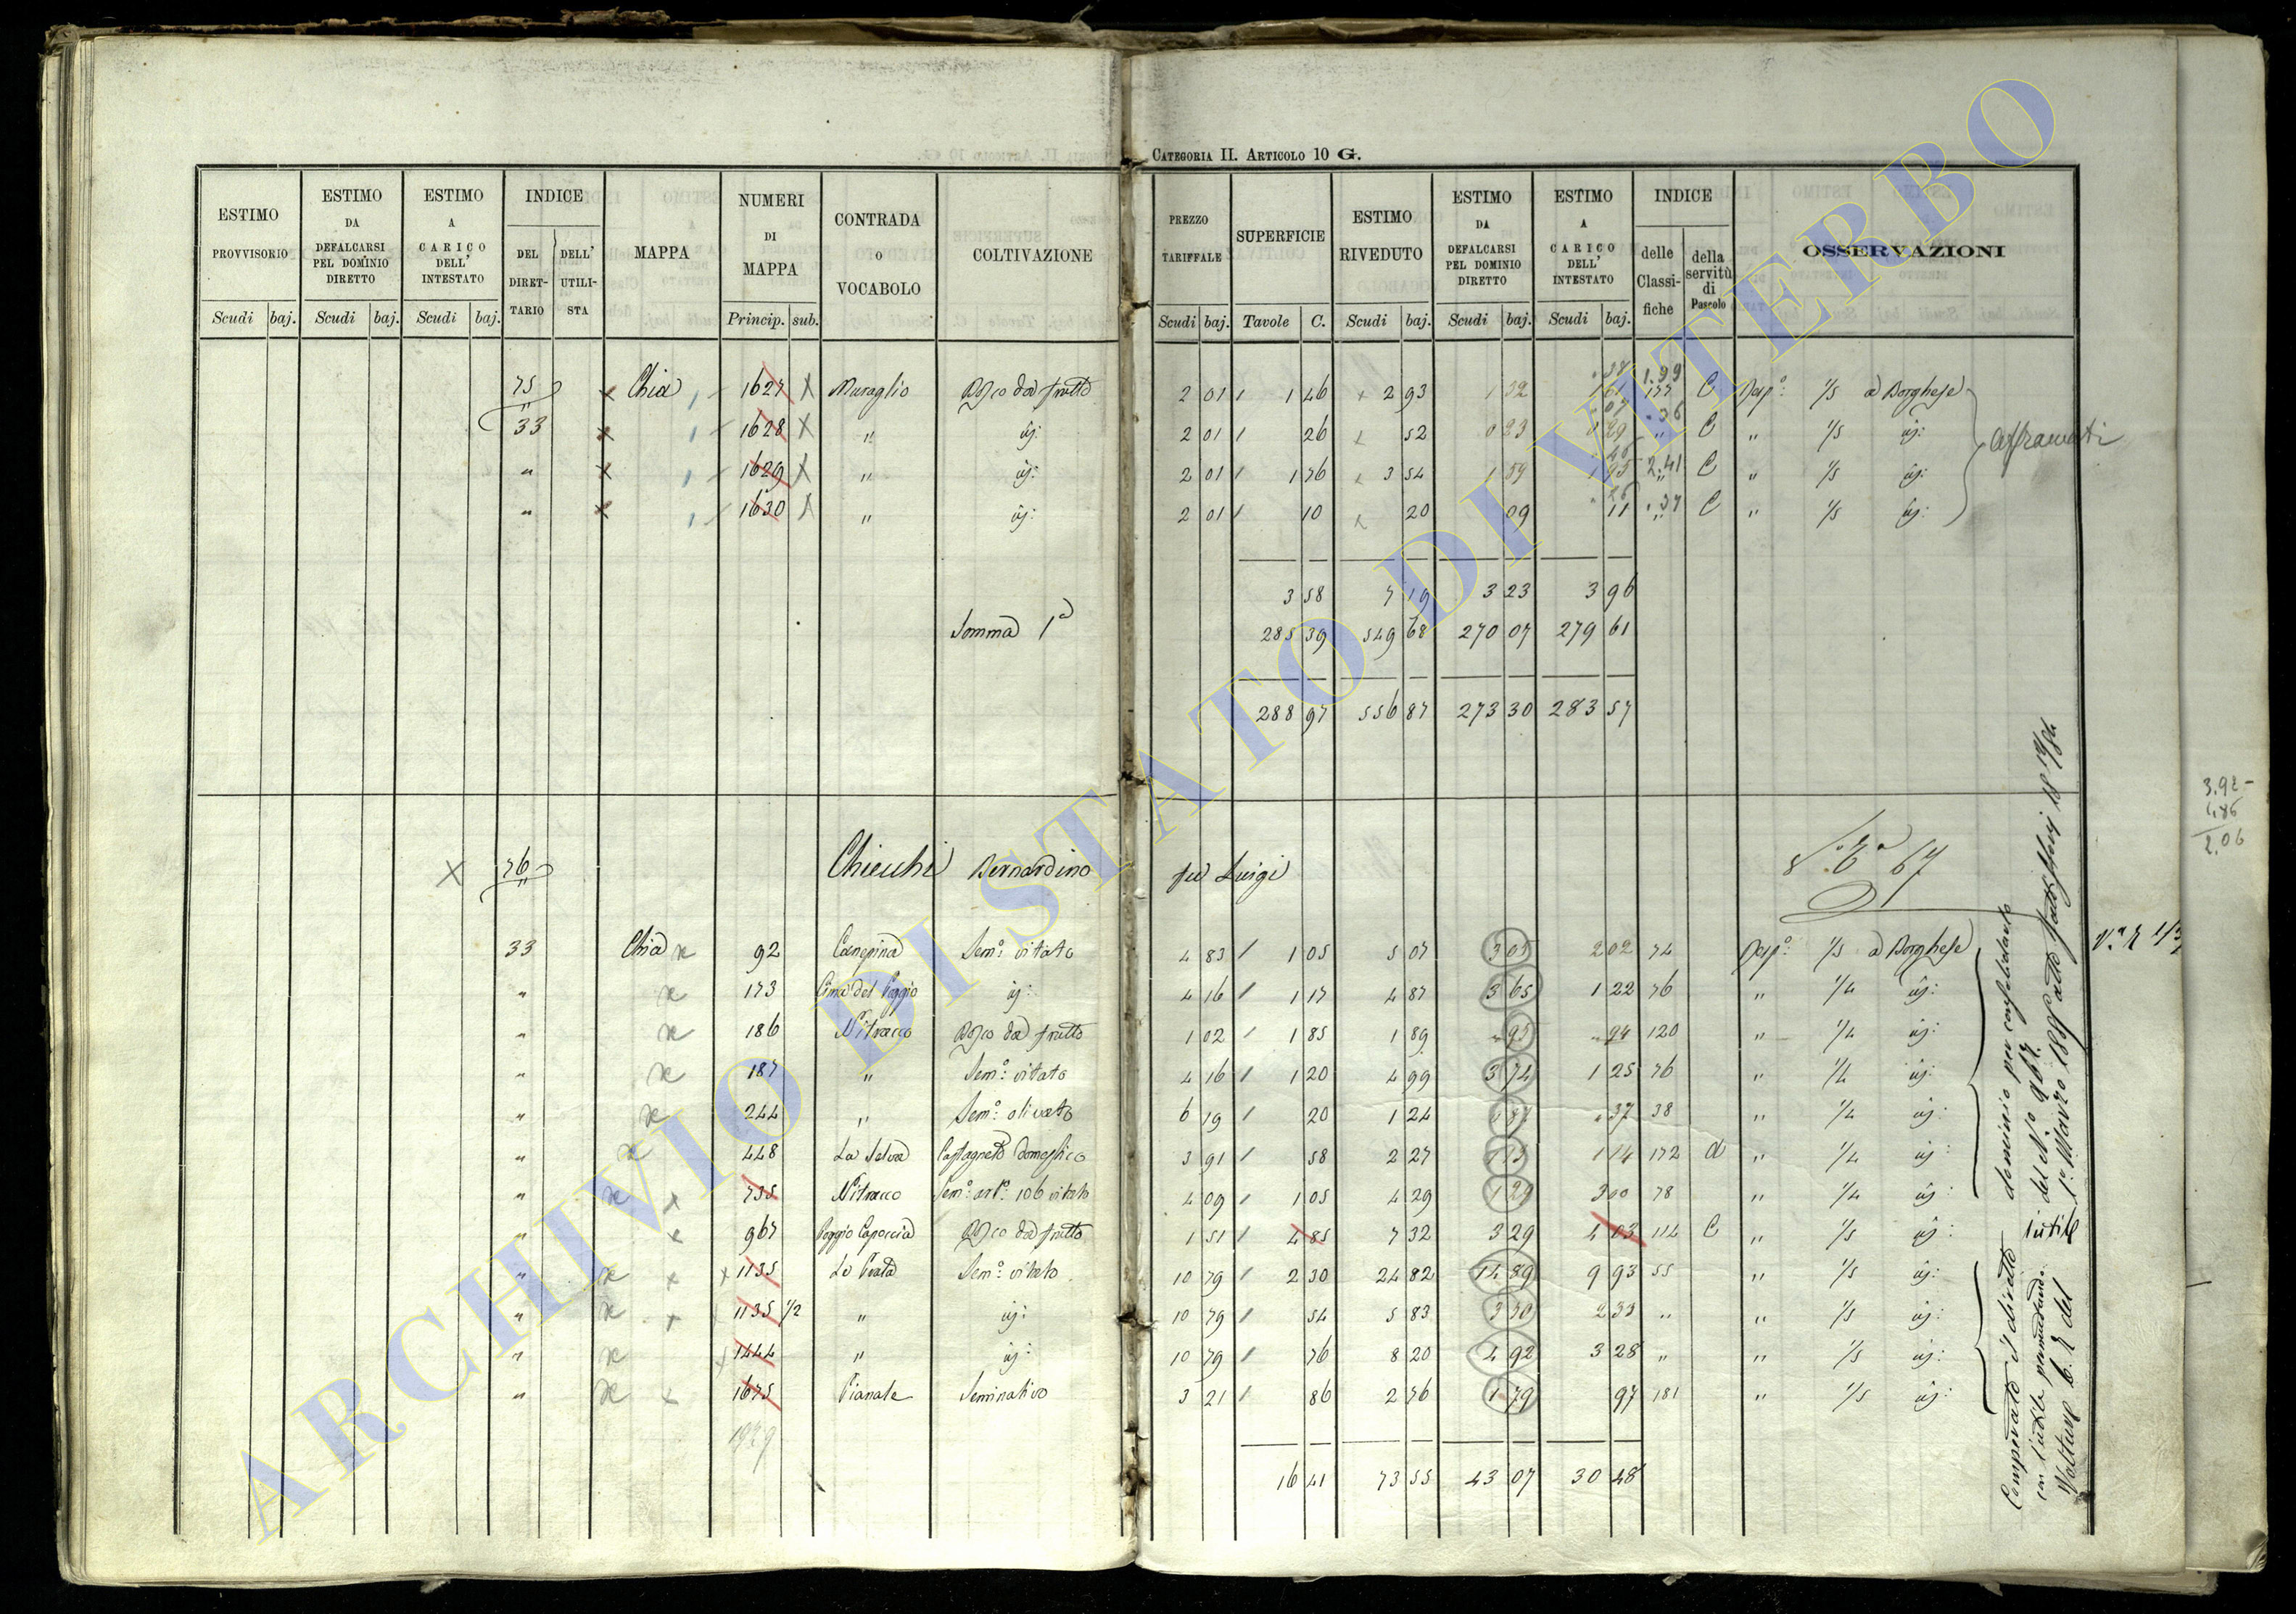 CATEGORIA II. ARTICOLO 10 G.
ESTIMO PROVVISORIO Scudi baj. ESTIMO DA DEFALCARSI PEL DOMINIO DIRETTO Scudi baj. ESTIMO A CARICO DELL' INTESTATO Scudi baj. INDICE DEL DIRETTARIO DELL' UTILISTA MAPPA NUMERI DI MAPPA Princip. sub. CONTRADA O VOCABOLO COLTIVAZIONE PREZZO TARIFFALE Scudi baj. SUPERFICIE Tavole C. ESTIMO RIVEDUTO Scudi baj. ESTIMO DA DEFALCARSI PEL DOMINIO DIRETTO Scudi baj. ESTIMO A CARICO DELL' INTESTATO Scudi baj. INDICE delle Classifiche della servitù di Pascolo OSSERVAZIONI
75 Chia 1627 Muraglio Bosco da frutto 2 01 1 46 2 93 1 32 1 61 177 C Risp.º 1/5 a Borghese
33 1628 " id: 2 01 26 52 0 23 0 29 " C " 1/5 id:
" 1629 " id: 2 01 1 76 3 54 1 59 1 95 " C " 1/5 id:
" 1630 " id: 2 01 10 20 09 11 " C " 1/5 id:
Affrancati
3 58 7 19 3 23 3 96
Somma 1ª 285 39 549 68 270 07 279 61
288 97 556 87 273 30 283 57
3.92 -
1.86
2.06
76 Chiecchi Bernardino fu Luigi
33 Chia 92 Canepina Sem.º vitato 4 83 1 05 5 07 3 05 2 02 74 Risp.º 1/5 a Borghese
" 173 Cima del Poggio id: 4 16 1 17 4 87 3 65 1 22 76 " 1/4 id:
" 186 Nitracco Bosco da frutto 1 02 1 85 1 89 " 95 " 94 120 " 1/4 id:
" 187 " Sem.º vitato 4 16 1 20 4 99 3 74 1 25 76 " 1/4 id:
" 244 " Sem.º olivato 6 19 20 1 24 " 87 " 37 38 " 1/4 id:
" 448 La Selva Castagneto domestico 3 91 58 2 27 1 13 1 14 172 a " 1/4 id:
" 735 Nitracco Sem.º art.º 106 vitato 4 09 1 05 4 29 1 29 3 00 78 " 1/4 id:
" 967 Poggio Capoccia Bosco da frutto 1 51 4 85 7 32 3 29 4 03 114 C " 1/5 id:
" 1135 La Prata Sem.º vitato 10 79 2 30 24 82 14 89 9 93 55 " 1/5 id:
" 1135 1/2 " id: 10 79 54 5 83 3 50 2 33 " " 1/5 id:
" 1444 " id: 10 79 76 8 20 4 92 3 28 " " 1/5 id:
" 1675 Pianale Seminativo 3 21 86 2 76 1 79 97 181 " 1/5 id:
1929
16 41 73 55 43 07 30 48
dominio per consolidamento
del N.º 967.
1º Marzo 1889
utile
Comperato il diretto
con l'utile
Volture N. 2 del
ARCHIVIO DI STATO DI VITERBO